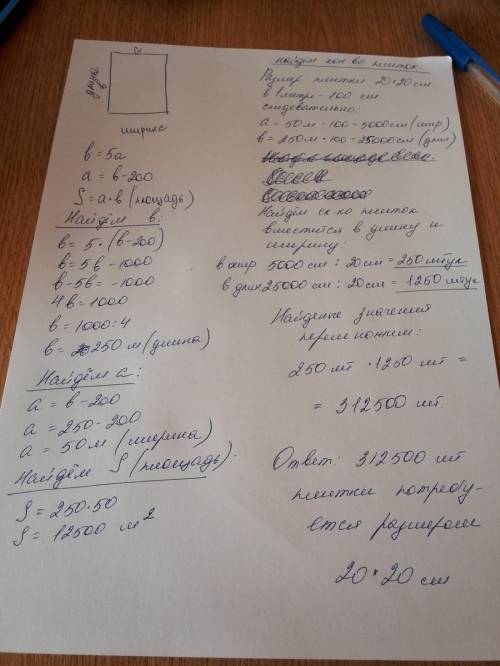 a
длина
в
ширина
в = 5а
а = в - 200
S = а · в (площадь)
Найдём в:
в = 5 · (в - 200)
в = 5в - 1000
в - 5в = - 1000
4в = 1000
в = 1000 : 4
в = 250 м (длина)
Найдём а:
а = в - 200
а = 250 - 200
а = 50 м (ширина)
Найдём S (площадь):
S = 250 · 50
S = 12500 м²
Найдём кол во плиток:
Размер плитки 20 * 20 см
в 1 метре - 100 см
следовательно:
а = 50 м · 100 = 5000 см (шир)
в = 250 м · 100 = 25000 см (длин)
Найдём ск-ко плиток
вместится в длину и
ширину:
в шир 5000 см : 20 см = 250 штук
в длин 25000 см : 20 см = 1250 штук
Найденые значения
перемножим:
250 шт · 1250 шт =
= 312500 шт.
Ответ: 312500 шт
плитки потребу-
ется размером
20 * 20 см